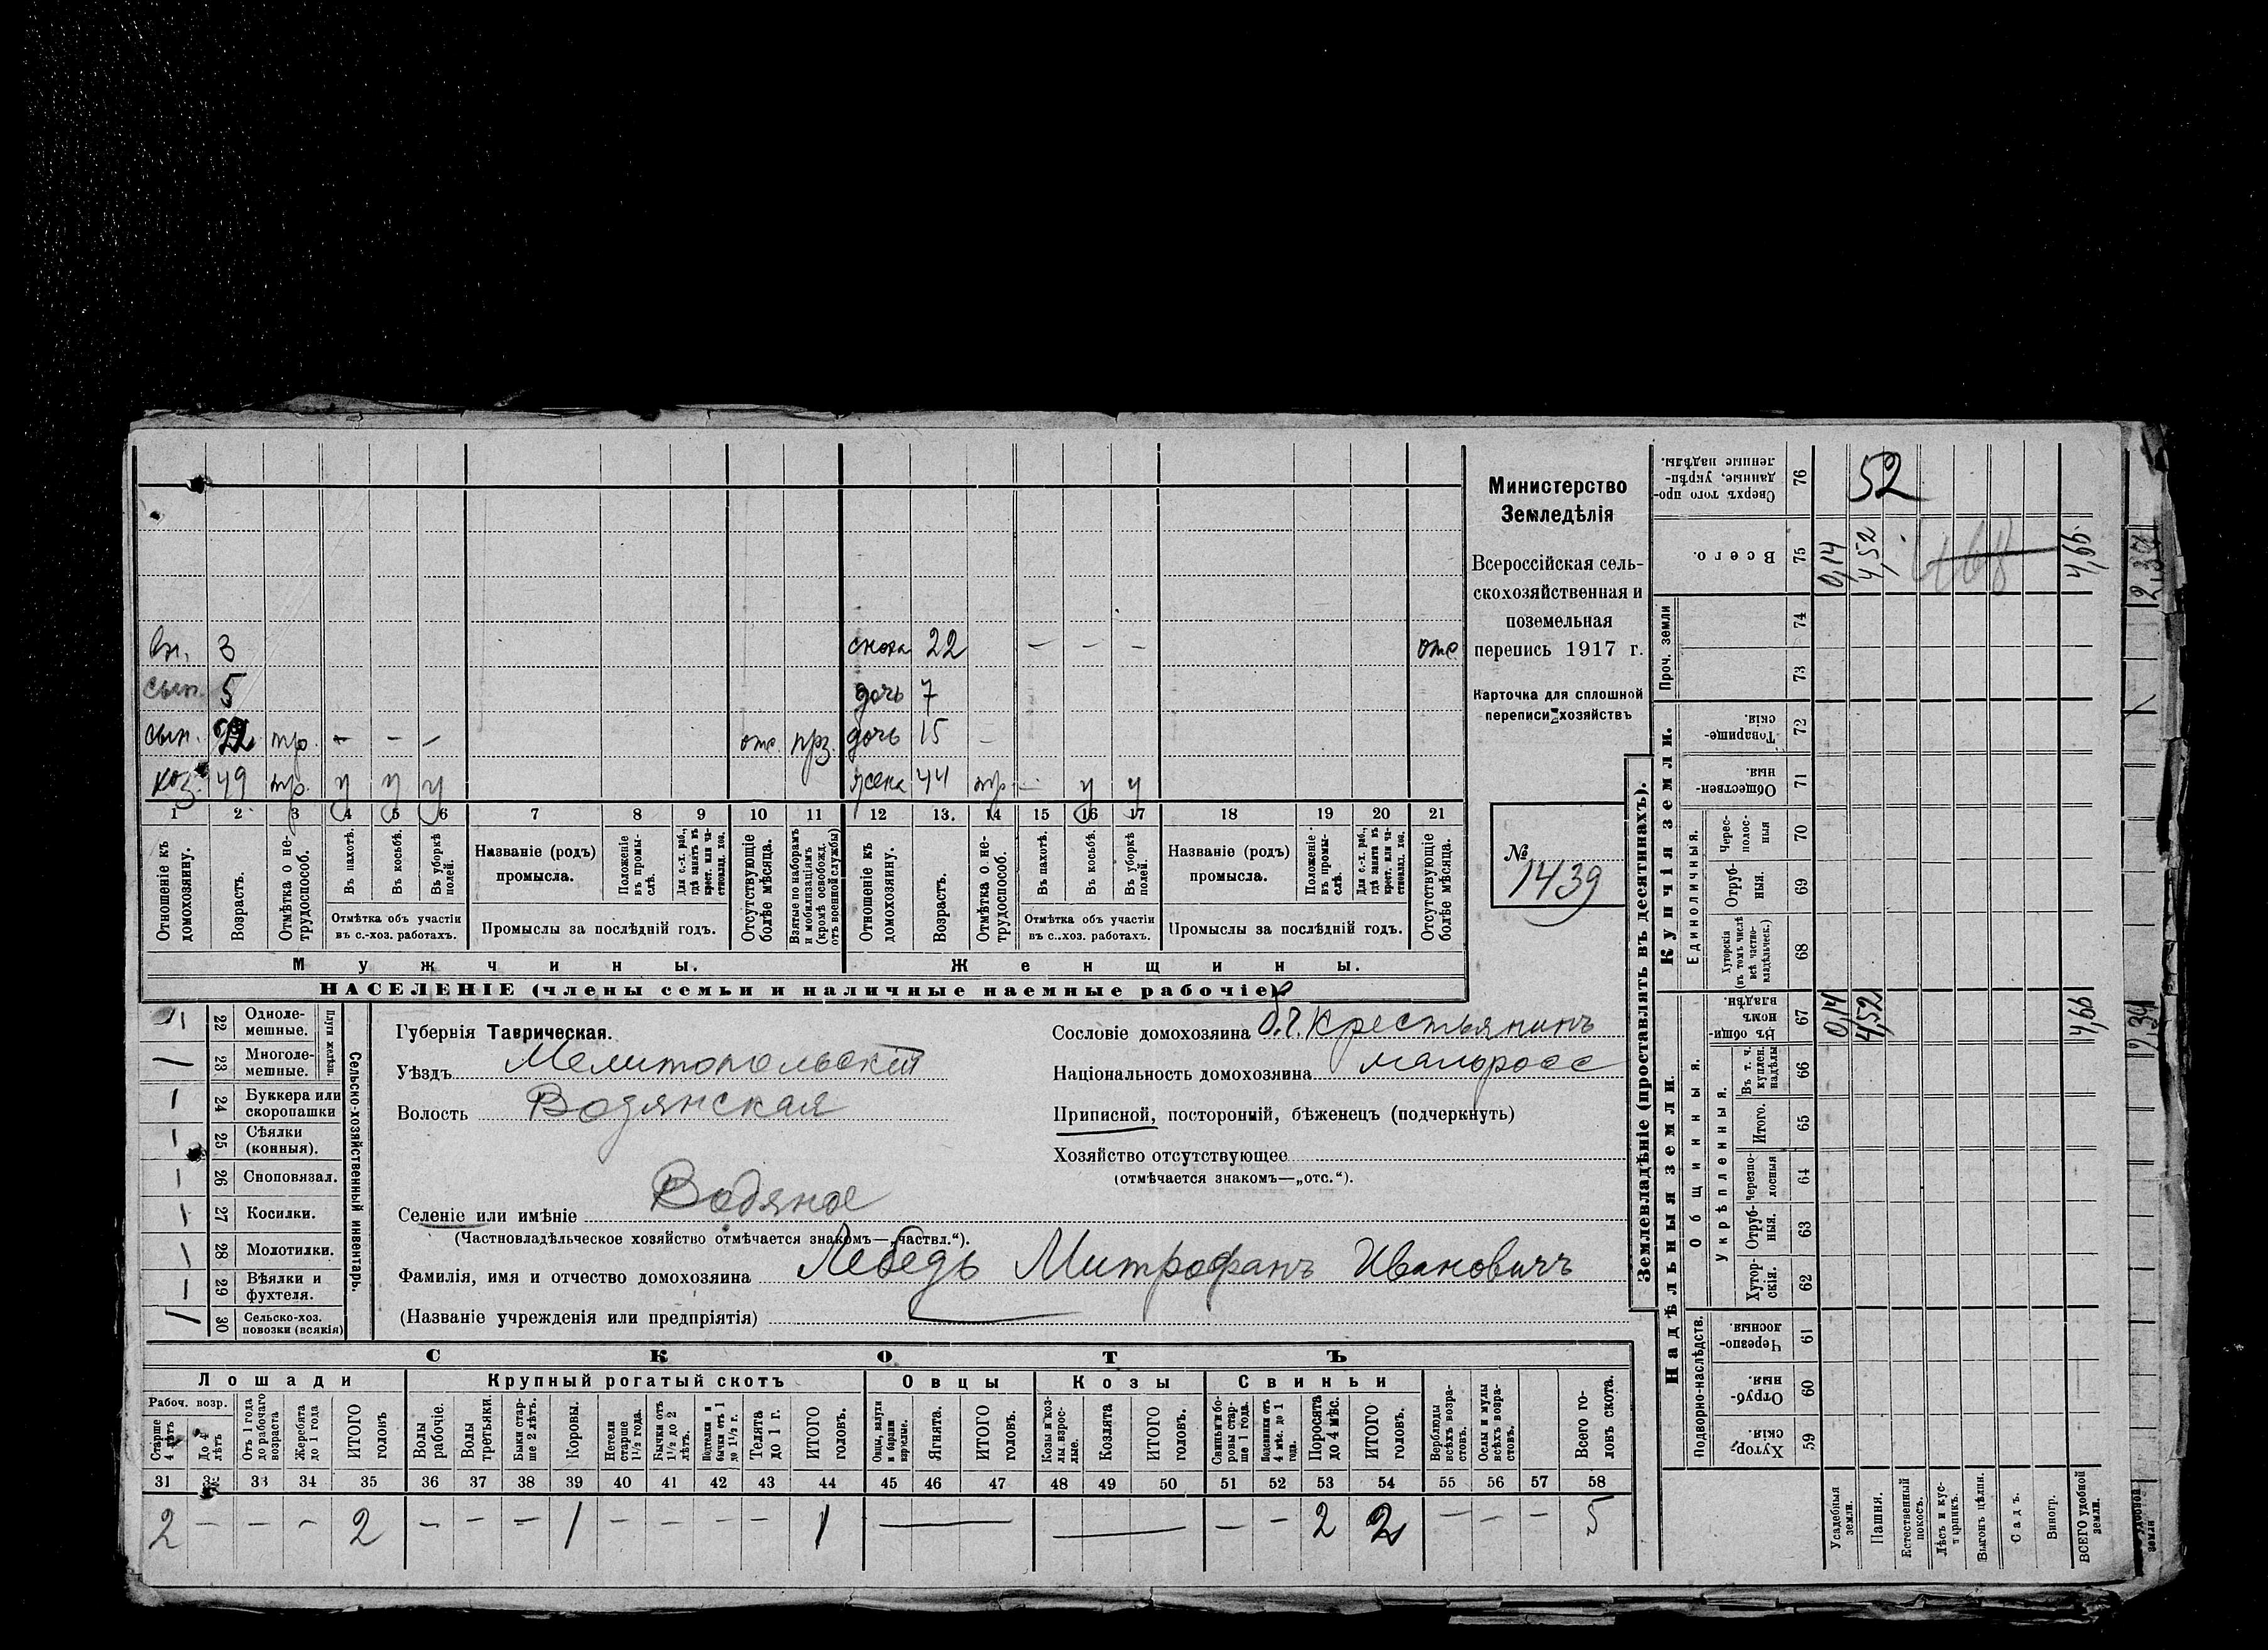 вн. 3 сноха 22 — — — отс.
сын. 5 дочь 7
сын. 22 тр. — — — отс. прз. дочь 15 —
хоз. 49 тр. у у у жена 44 тр. — у у
1 2 3 4 5 6 7 8 9 10 11 12 13. 14 15 16 17 18 19 20 21
Отношеніе къ домохозяину.
Возрастъ.
Отмѣтка о не-
трудоспособ.
Въ пахотѣ.
Въ косьбѣ.
Въ уборкѣ
полей.
Отмѣтка объ участіи
въ с.-хоз. работахъ.
Названіе (родъ)
промысла.
Положеніе
въ промы-
слѣ.
Для с.-х. раб.,
гдѣ занятъ въ
крест. или ча-
стновлад. хоз.
Промыслы за послѣдній годъ.
Отсутствующіе
болѣе мѣсяца.
Взятые по наборамъ
и мобилизаціямъ
(кромѣ освобожд.
отъ военной службы)
Отношеніе къ
домохозяину.
Возрастъ.
Отмѣтка о не-
трудоспособ.
Въ пахотѣ.
Въ косьбѣ.
Въ уборкѣ
полей.
Отмѣтка объ участіи
въ с..хоз. работахъ.
Названіе (родъ)
промысла.
Положеніе
въ промы-
слѣ.
Для с.-х. раб.,
гдѣ занята въ
крест. или ча-
стновлад. хоз.
Промыслы за послѣдній годъ.
Отсутствующіе
болѣе мѣсяца.
Мужчины.
Женщины.
НАСЕЛЕНІЕ (члены семьи и наличные наемные рабочіе)
Министерство
Земледѣлія
Всероссійская сель-
скохозяйственная и
поземельная
перепись 1917 г.
Карточка для сплошной
переписи хозяйствъ
№
1439
22 Одноле-
мешные.
23 Многоле-
мешные.
Плуги желѣзн.
24 Буккера или
скоропашки
25 Сѣялки
(конныя).
26 Сноповязал.
27 Косилки.
28 Молотилки.
29 Вѣялки и
фухтеля.
30 Сельско-хоз.
повозки (всякія)
Сельско-хозяйственный инвентарь.
Губернія Таврическая.
Уѣздъ Мелитопольскій
Волость Водянская
Селеніе или имѣніе Водяное
(Частновладѣльческое хозяйство отмѣчается знакомъ—„частвл.“).
Фамилія, имя и отчество домохозяина Лебедь Митрофанъ Ивановичъ
(Названіе учрежденія или предпріятія)
Сословіе домохозяина Крестьянинъ
Національность домохозяина малоросс
Приписной, посторонній, бѣженецъ (подчеркнуть)
Хозяйство отсутствующее
(отмѣчается знакомъ—„отс.“).
СКОТЪ
Лошади Крупный рогатый скотъ Овцы Козы Свиньи
Рабоч. возр.
Старше
4 лѣтъ
До 4
лѣтъ
Отъ 1 года
до рабочаго
возраста
Жеребята
до 1 года
ИТОГО
головъ
Волы
рабочіе.
Волы
третьяки.
Быки стар-
ше 2 лѣтъ.
Коровы.
Нетели
старше
1½ года.
Бычки отъ
1½ до 2
лѣтъ.
Подтелки и
бычки отъ 1
до 1½ г.
Телята
до 1 г.
ИТОГО
головъ.
Овцы, валухи
и бараны
взрослые.
Ягнята.
ИТОГО
головъ.
Козы и коз-
лы взрос-
лые.
Козлята
ИТОГО
головъ.
Свиньи и бо-
ровы стар-
ше 1 года.
Подсвинки отъ
4 мѣс. до 1
года.
Поросята
до 4 мѣс.
ИТОГО
головъ.
Верблюды
всѣхъ возра-
стовъ.
Ослы и мулы
всѣхъ возра-
стовъ.
Всего го-
ловъ скота.
31 32 33 34 35 36 37 38 39 40 41 42 43 44 45 46 47 48 49 50 51 52 53 54 55 56 57 58
2 — — — 2 — — — 1 — — — — 1 — — — — 2 2 — — — 5
Землевладѣніе (проставлять въ десятинахъ).
Надѣльныя земли.
Купчія земли.
Проч. земли
Подворно-наслѣдств.
Общинныя.
Укрѣпленныя.
Единоличныя.
Сверхъ того про-
данные, укрѣп-
ленные надѣлы.
76
52
Всего.
75
0,14
4,52
4,66
74
73
Товарище-
скія.
72
Обществен-
ныя.
71
Черес-
полос-
ныя
70
Отруб-
ныя.
69
Хуторскія
(въ томъ числѣ
всѣ частно-
владѣльческ.)
68
Въ общин-
номъ
владѣн.
67
0,14
4,52
4,66
Въ т. ч.
куплен.
надѣлы
66
Итого.
65
Черезпо-
лосныя
64
Отруб-
ныя.
63
Хутор-
скія.
62
Черезпо-
лосныя.
61
Отруб-
ныя.
60
Хутор-
скія.
59
Усадебныя
земли.
Пашня.
Естественный
покосъ.
Лѣсъ и кус-
тарникъ.
Выгонъ цѣлин.
Садъ.
Виногр.
ВСЕГО удобной
земли.